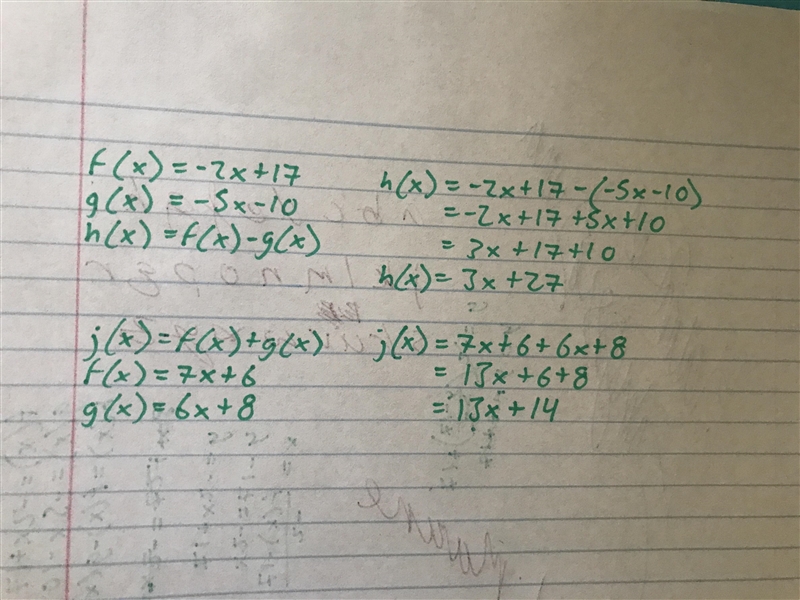 f(x) = -2x+17
g(x) = -5x-10
h(x) = f(x)-g(x)
h(x) = -2x+17-(-5x-10)
= -2x+17+5x+10
= 3x+17+10
h(x) = 3x+27
j(x) = f(x)+g(x)
f(x) = 7x+6
g(x) = 6x+8
j(x) = 7x+6+6x+8
= 13x+6+8
= 13x+14